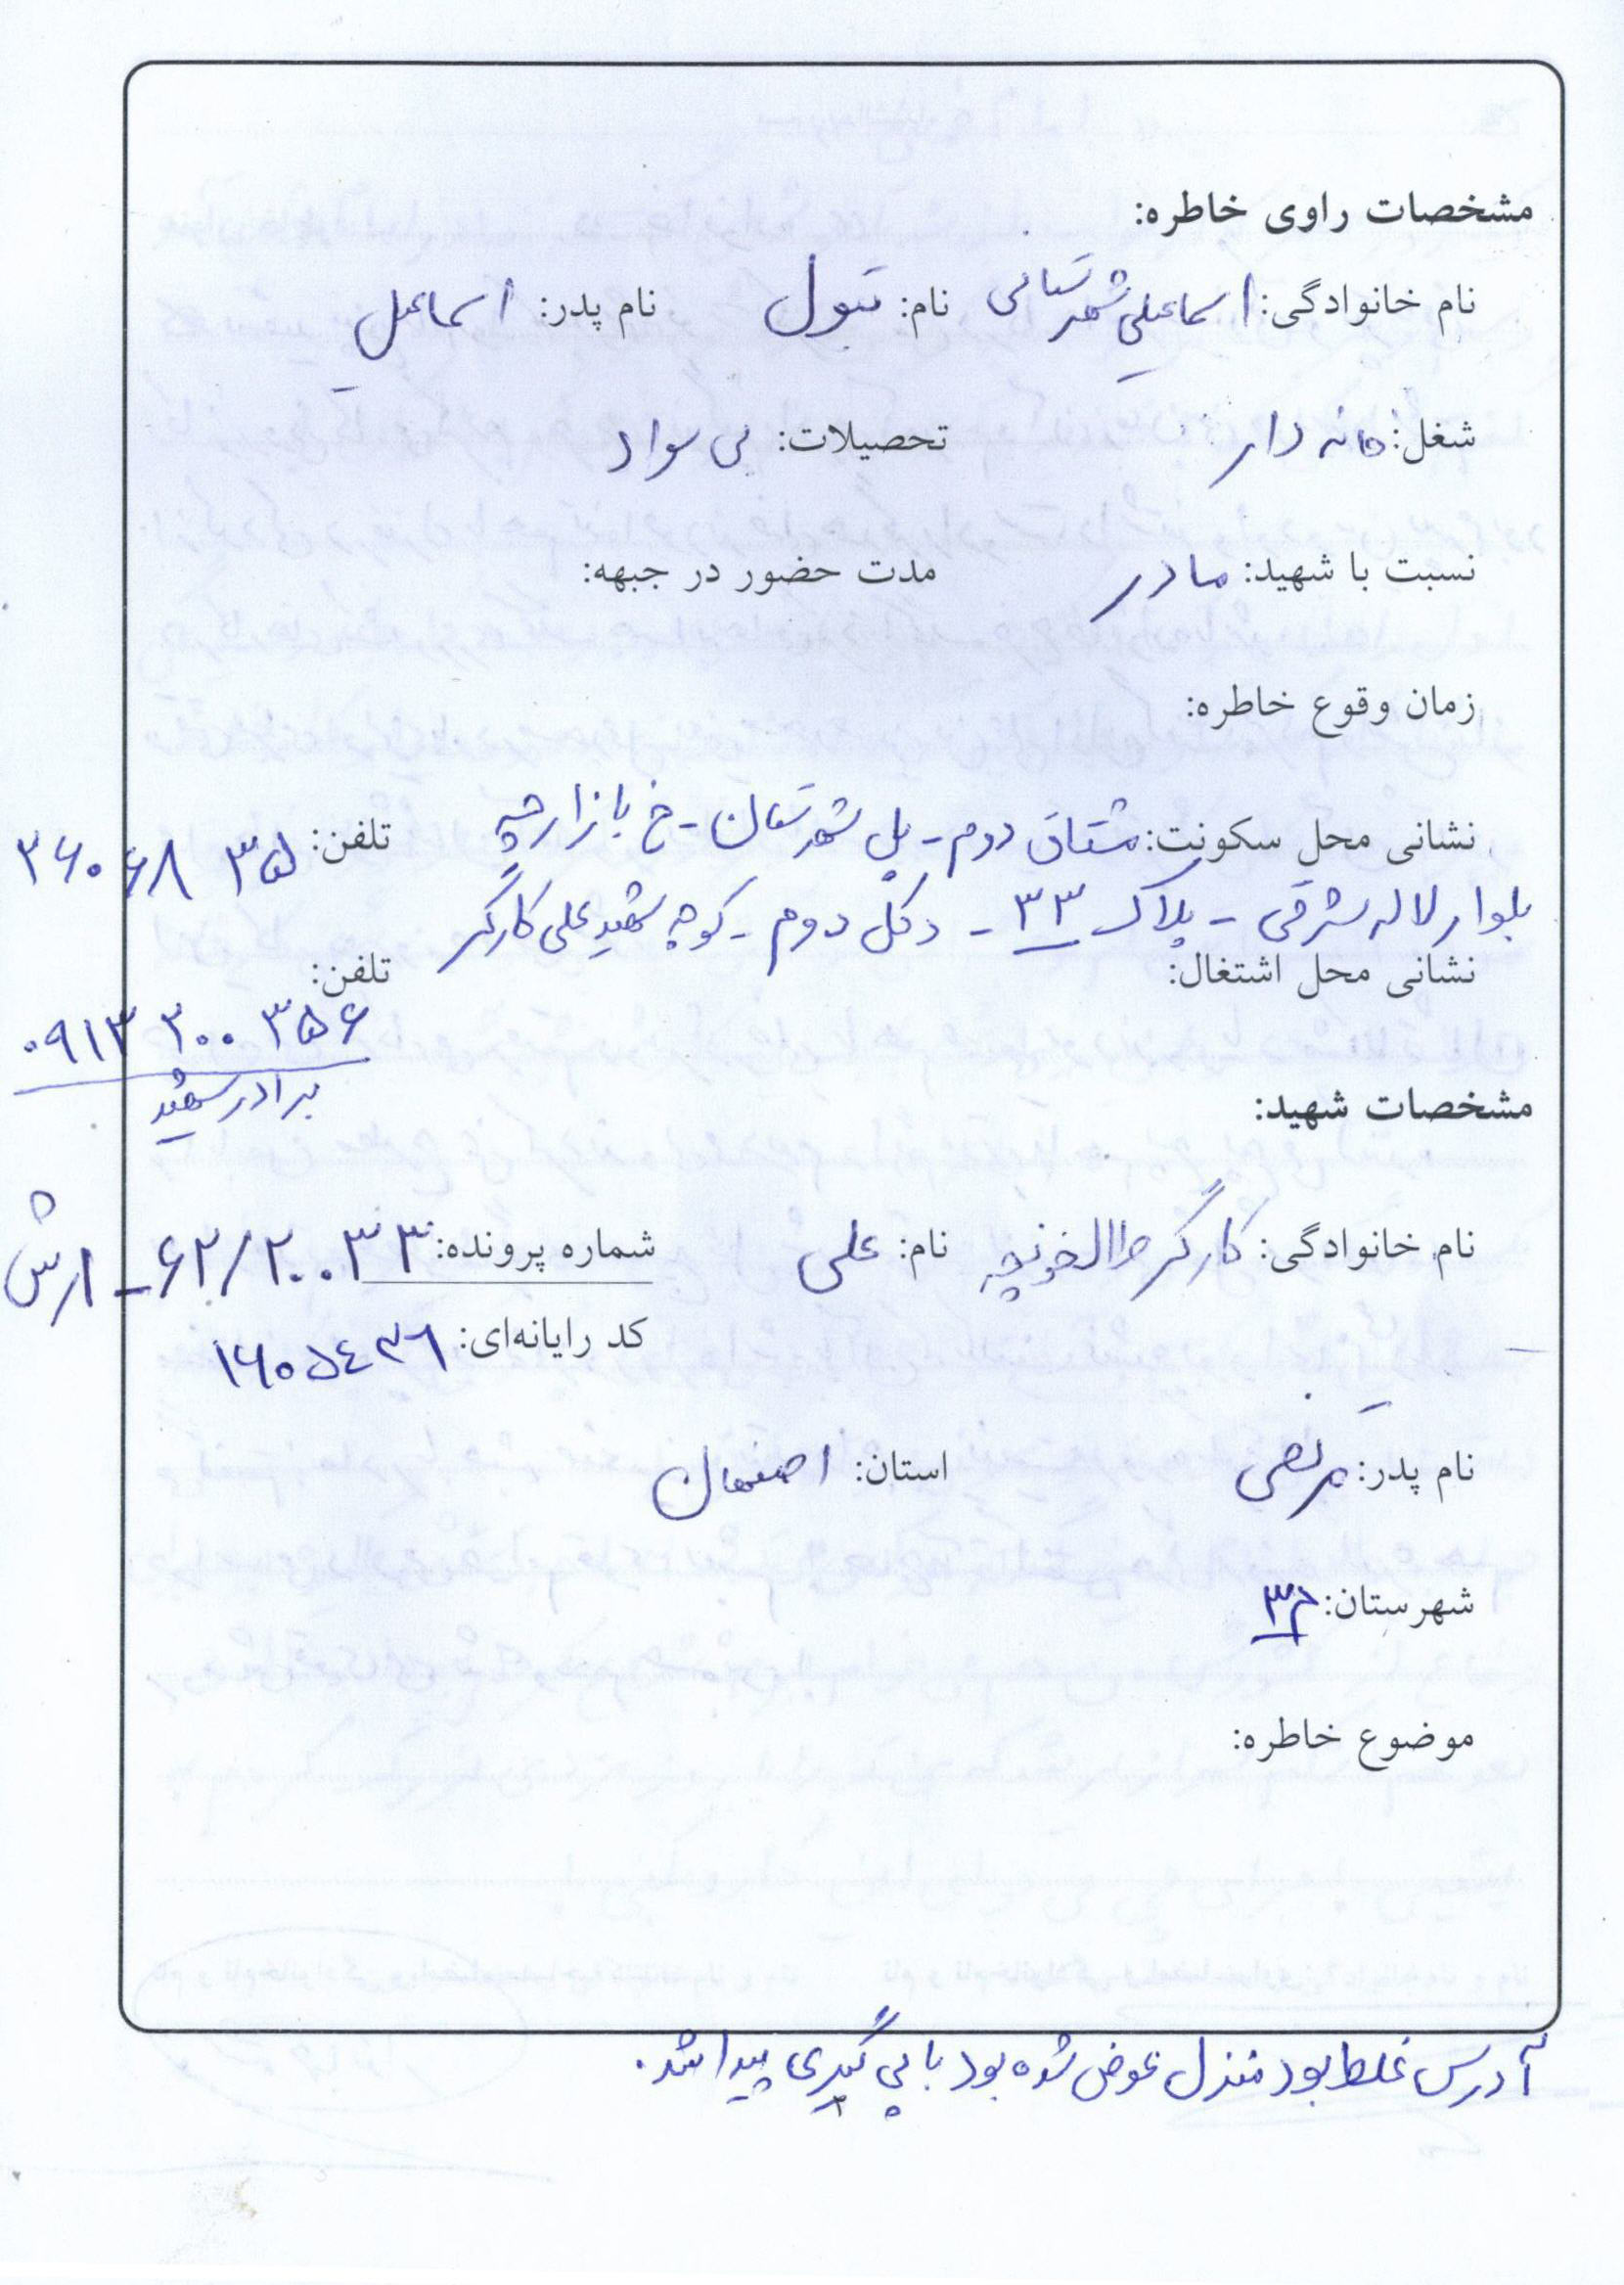 مشخصات راوی خاطره:
نام خانوادگی: اسماعیلی شهرستانی نام: بتول نام پدر: اسماعیل
شغل: خانه دار تحصیلات: بی سواد
نسبت با شهید: مادر مدت حضور در جبهه:
زمان وقوع خاطره:
نشانی محل سکونت: مشتاق دوم - پل شهرستان - خ بازارچه تلفن: ۳۵ ۶۸ ۲۶۰
بلوار لاله شرقی - پلاک ۳۳ - دکل دوم - کوچه شهید علی کارگر
نشانی محل اشتغال: تلفن:
۰۹۱۳ ۳۰۰ ۳۵۶
برادر شهید
مشخصات شهید:
نام خانوادگی: کارگر نام: علی شماره پرونده: ۶۲/۲۰۰۳۳ - ۱
کد رایانه‌ای: ۱۶۰۵۴۳۶
نام پدر: مرتضی استان: اصفهان
شهرستان: م۳
موضوع خاطره:
آدرس غلط بود منزل عوض شده بود با پی گیری پیدا شد.